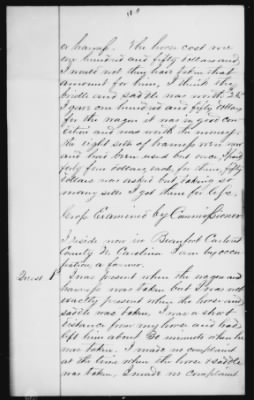 a harness. The horse cost me
one hundred and fifty dollars and
I would not then have taken that
amount for him, I think the
bridle and saddle was worth
I gave one hundred and fifty dollars
for the wagon it was in good con
dition and was worth the money
the eight sets of harness were new
and had been used but once, I paid
only four dollars each, for them, fifty
dollars was asked but taking so
many setts I got them for less.
Cross Examined by Commissioner
I reside now in Beaufort Carteret
County N. Carolina I am by occu
pation a farmer.
Quest 1 I was present when the wagon and
harness was taken but I was not
exactly present when the horse and
saddle was taken. I was a short
distance from my horse and had
left him about 20 minutes when he
was taken. I made no complaint
at the time when the horse & saddle
was taken, I made no complaint